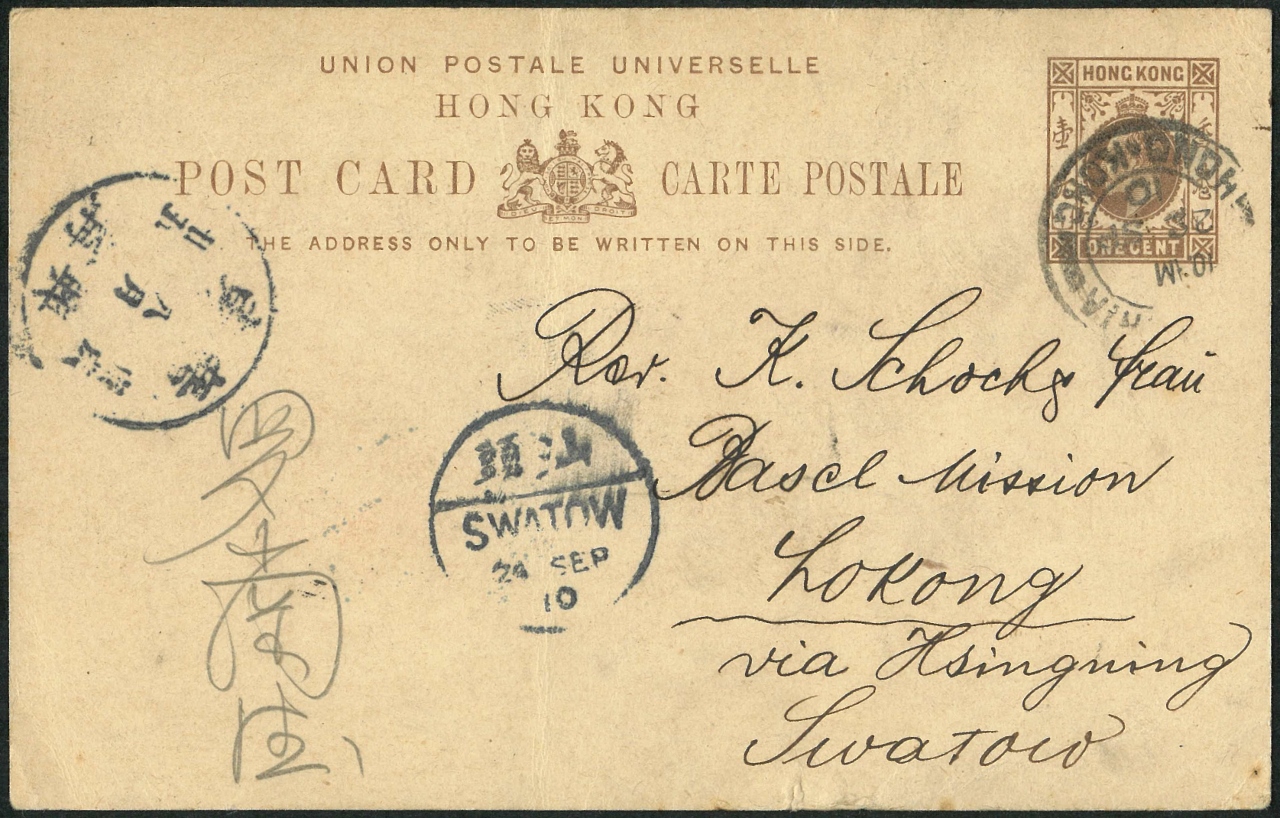 UNION POSTALE UNIVERSELLE
HONG KONG
POST CARD CARTE POSTALE
DIEU ET MON DROIT
THE ADDRESS ONLY TO BE WRITTEN ON THIS SIDE.
HONG KONG
壹
ONE CENT
HONG KONG
SP
10
Rev. K. Schock & Frau
Basel Mission
Lokong
via Hsingning
Swatow
汕頭
SWATOW
24 SEP
10